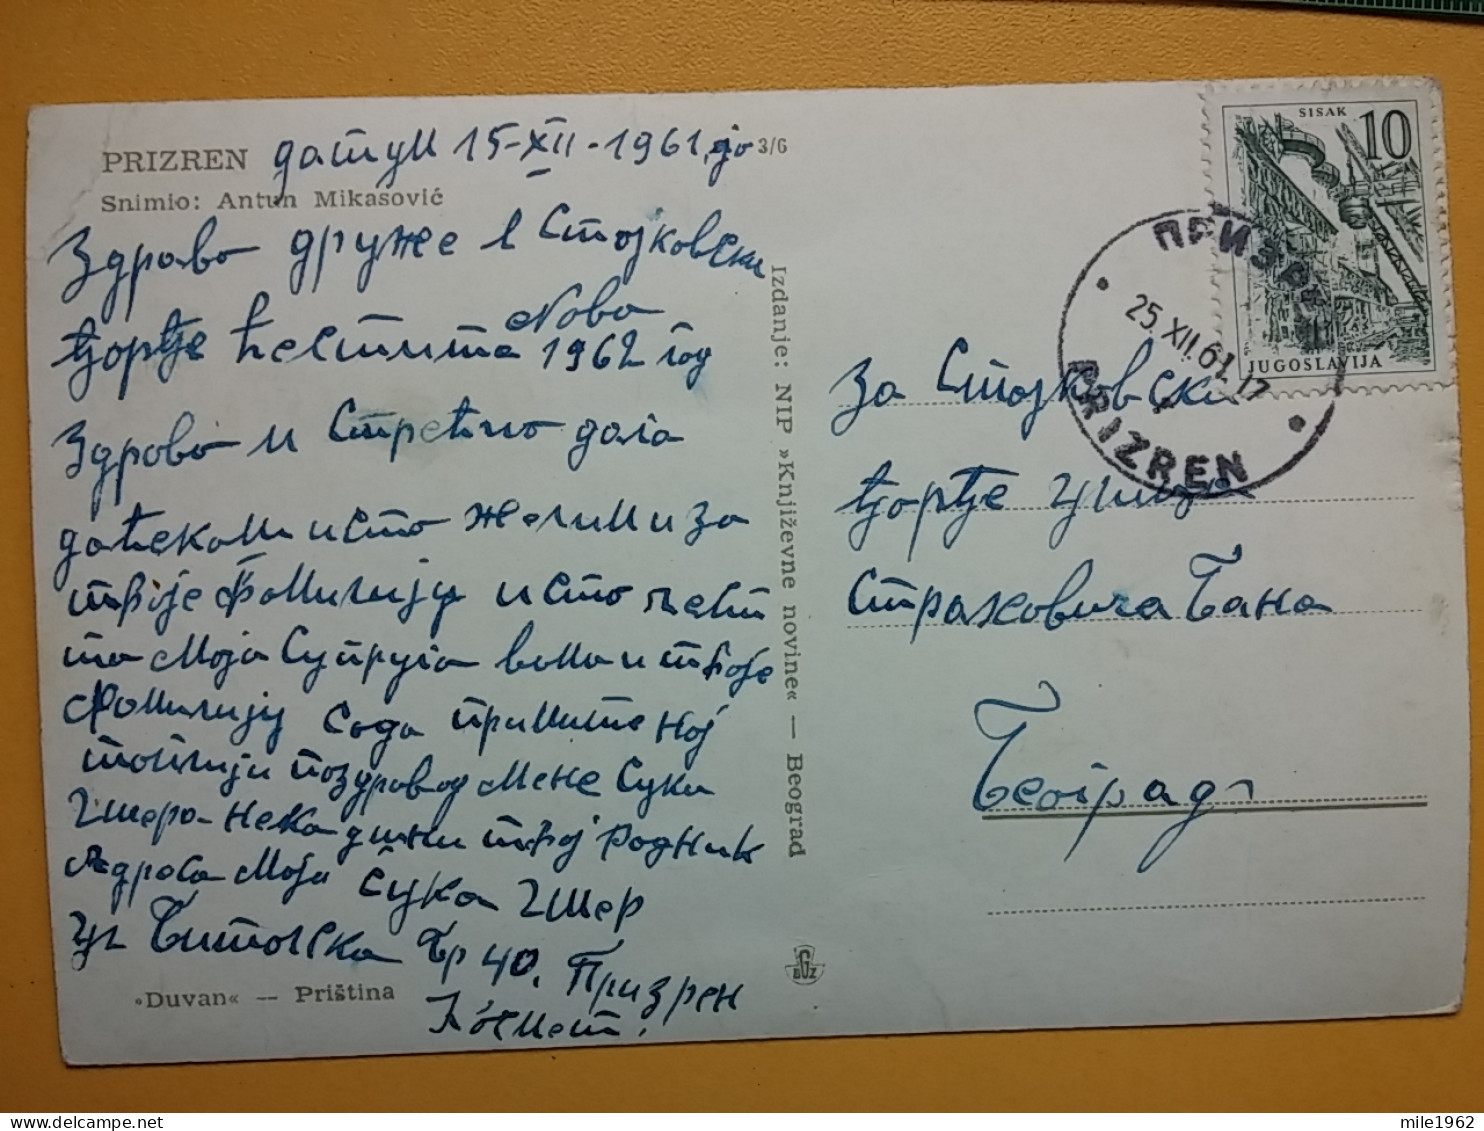 PRIZREN
датум 15-XII-1961, до
3/6
Snimio: Antun Mikasović
Здраво друже в Стојковски
Ђорђе ћестита Nова 1962 год
Здраво и Стрећно дога
даћекам исто желим и за
твоје Фомилију исто
та Моја Супруга вама и твоје
Фомилију Сада примите
топлији поздрав од мене Сука
некадични твој Родник
Адреса Моја Сука
ул Битолска бр 40. Призрен
Космет.
»Duvan« — Priština
Izdanje: NIP »Književne novine« — Beograd
BGZ
SISAK
10
JUGOSLAVIJA
ПРИЗРЕН
25.XII.61.17
PRIZREN
За Стојковски
Ђорђе улица
Страховића Бана
Београд
mile1962